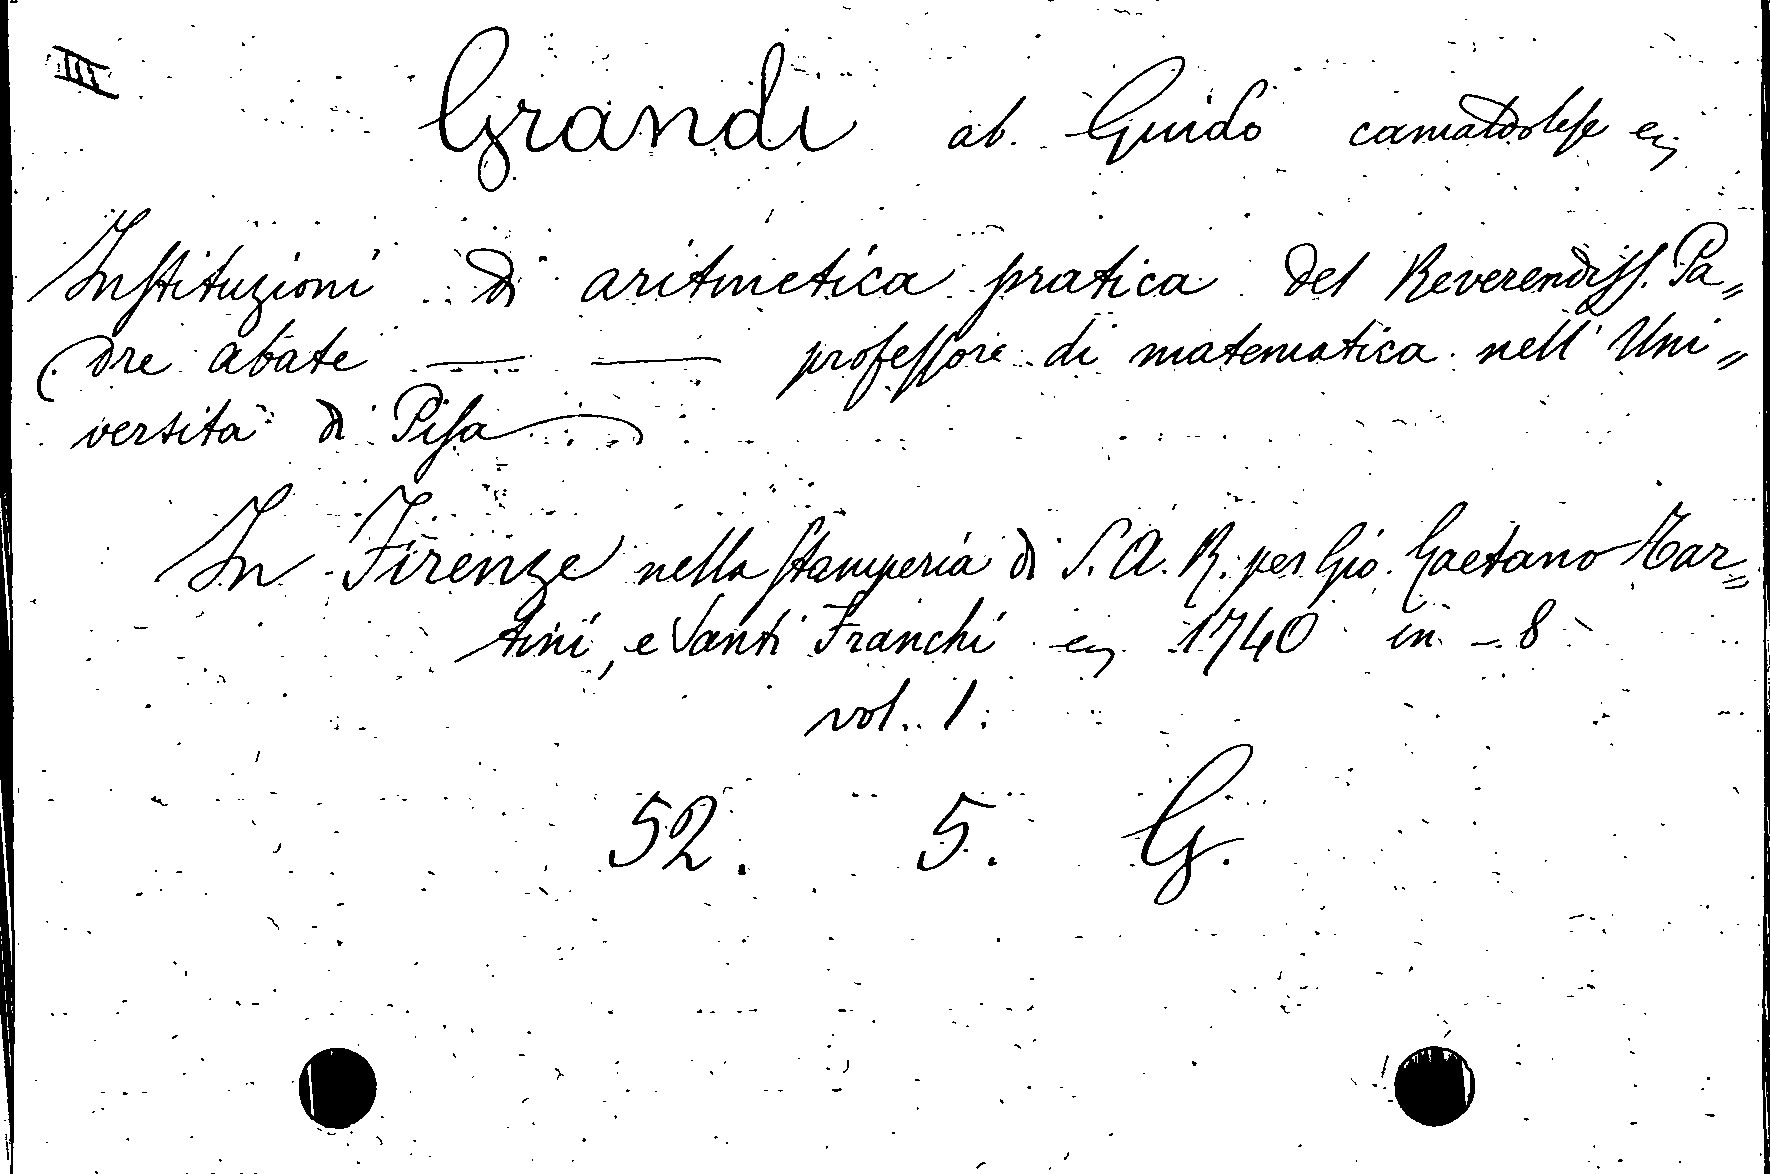 III
Grandi ab. Guido camaldolese
Instituzioni di aritmetica pratica del Reverendiss. Pa„
dre abate —— —— professore di matematica nell' Uni„
versità di Pisa
In Firenze nella Stamperia di S. A. R. per Gio. Gaetano Tar„
tini, e Santi Franchi 1740 in - 8
vol. 1.
52. 5. G.